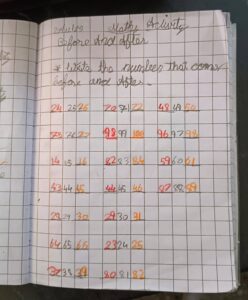 Maths Activity
Before And After
* Write the numbers that comes
Before and After.
24 25 26 70 71 72 48 49 50
25 26 27 98 99 100 96 97 98
14 15 16 82 83 84 59 60 61
43 44 45 44 45 46 87 88 89
28 29 30 29 30 31
64 65 66 23 24 25
37 38 39 80 81 82